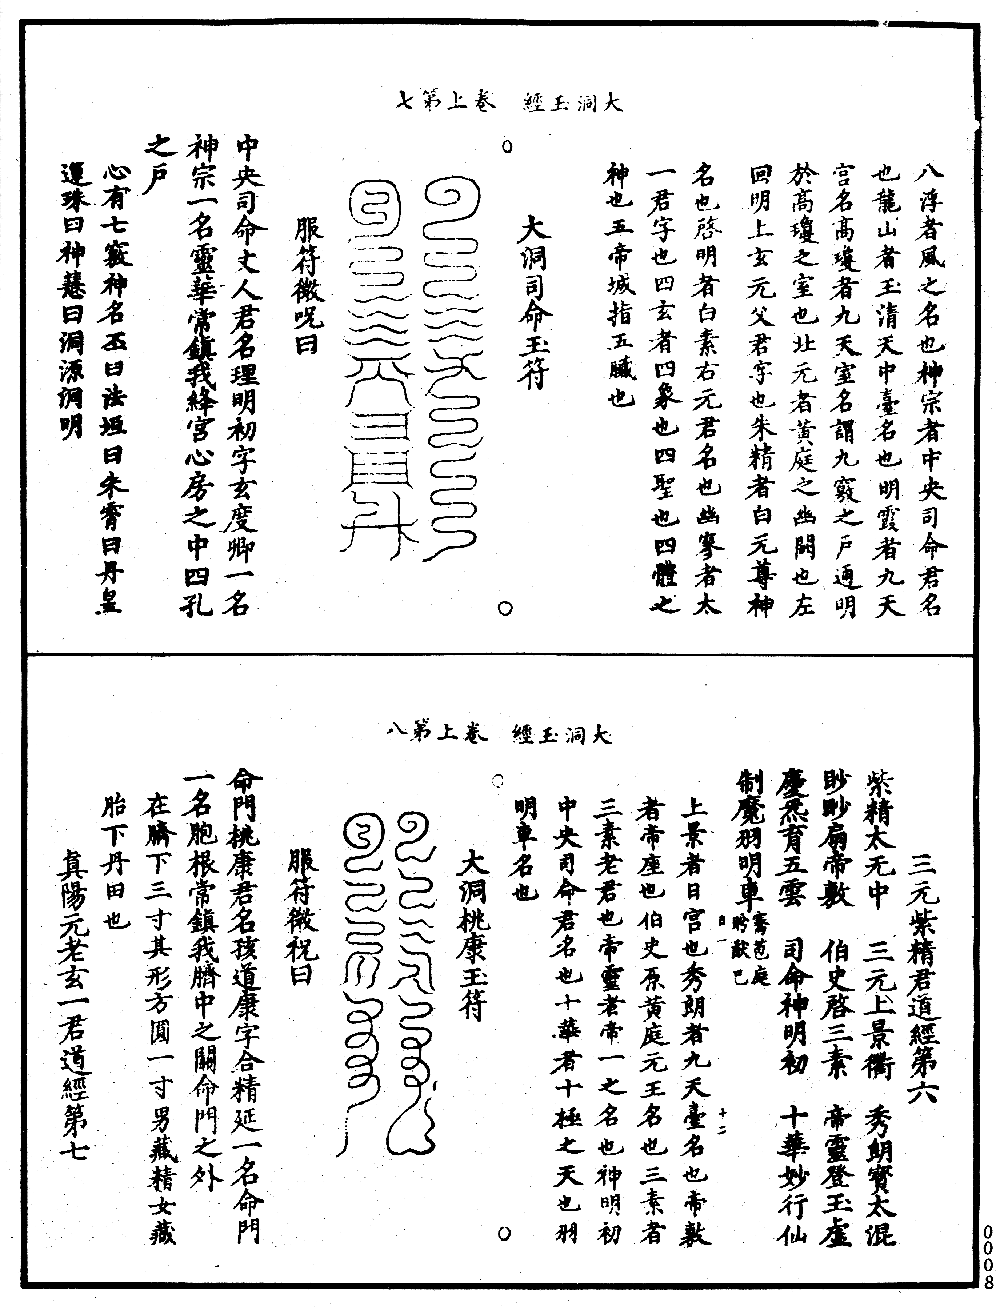 大洞玉經　卷上第七
八浮者風之名也神宗者中央司命君名
也龍山者玉清天中臺名也明霞者九天
宮名高瓊者九天室名謂九竅之戶通明
於高瓊之室也北元者黃庭之幽闕也左
回明上玄元父君字也朱精者白元尊神
名也啓明者白素右元君名也幽寥者太
一君字也四玄者四象也四聖也四體之
神也五帝城指五臟也
大洞司命玉符
服符微呪曰
中央司命丈人君名理明初字玄度卿一名
神宗一名靈華常鎮我絳宮心房之中四孔
之戶
心有七竅神名丕曰法垣曰朱霄曰丹皇
運珠曰神慧曰洞源洞明
大洞玉經　卷上第八
三元紫精君道經第六
紫精太无中　三元上景衢　秀朗寶太混
眇眇扇帝敷　伯史啓三素　帝靈登玉虛
慶炁育五雲　司命神明初　十華妙行仙
制魔羽明車
上景者日宮也秀朗者九天臺名也帝敷
者帝座也伯史原黃庭元王名也三素者
三素老君也帝靈老帝一之名也神明初
中央司命君名也十華者十極之天也羽
明車名也
十二
大洞桃康玉符
服符微祝曰
命門桃康君名孩道康字合精延一名命門
一名胞根常鎮我臍中之關命門之外
在臍下三寸其形方圓一寸男藏精女藏
胎下丹田也
真陽元老玄一君道經第七
0008